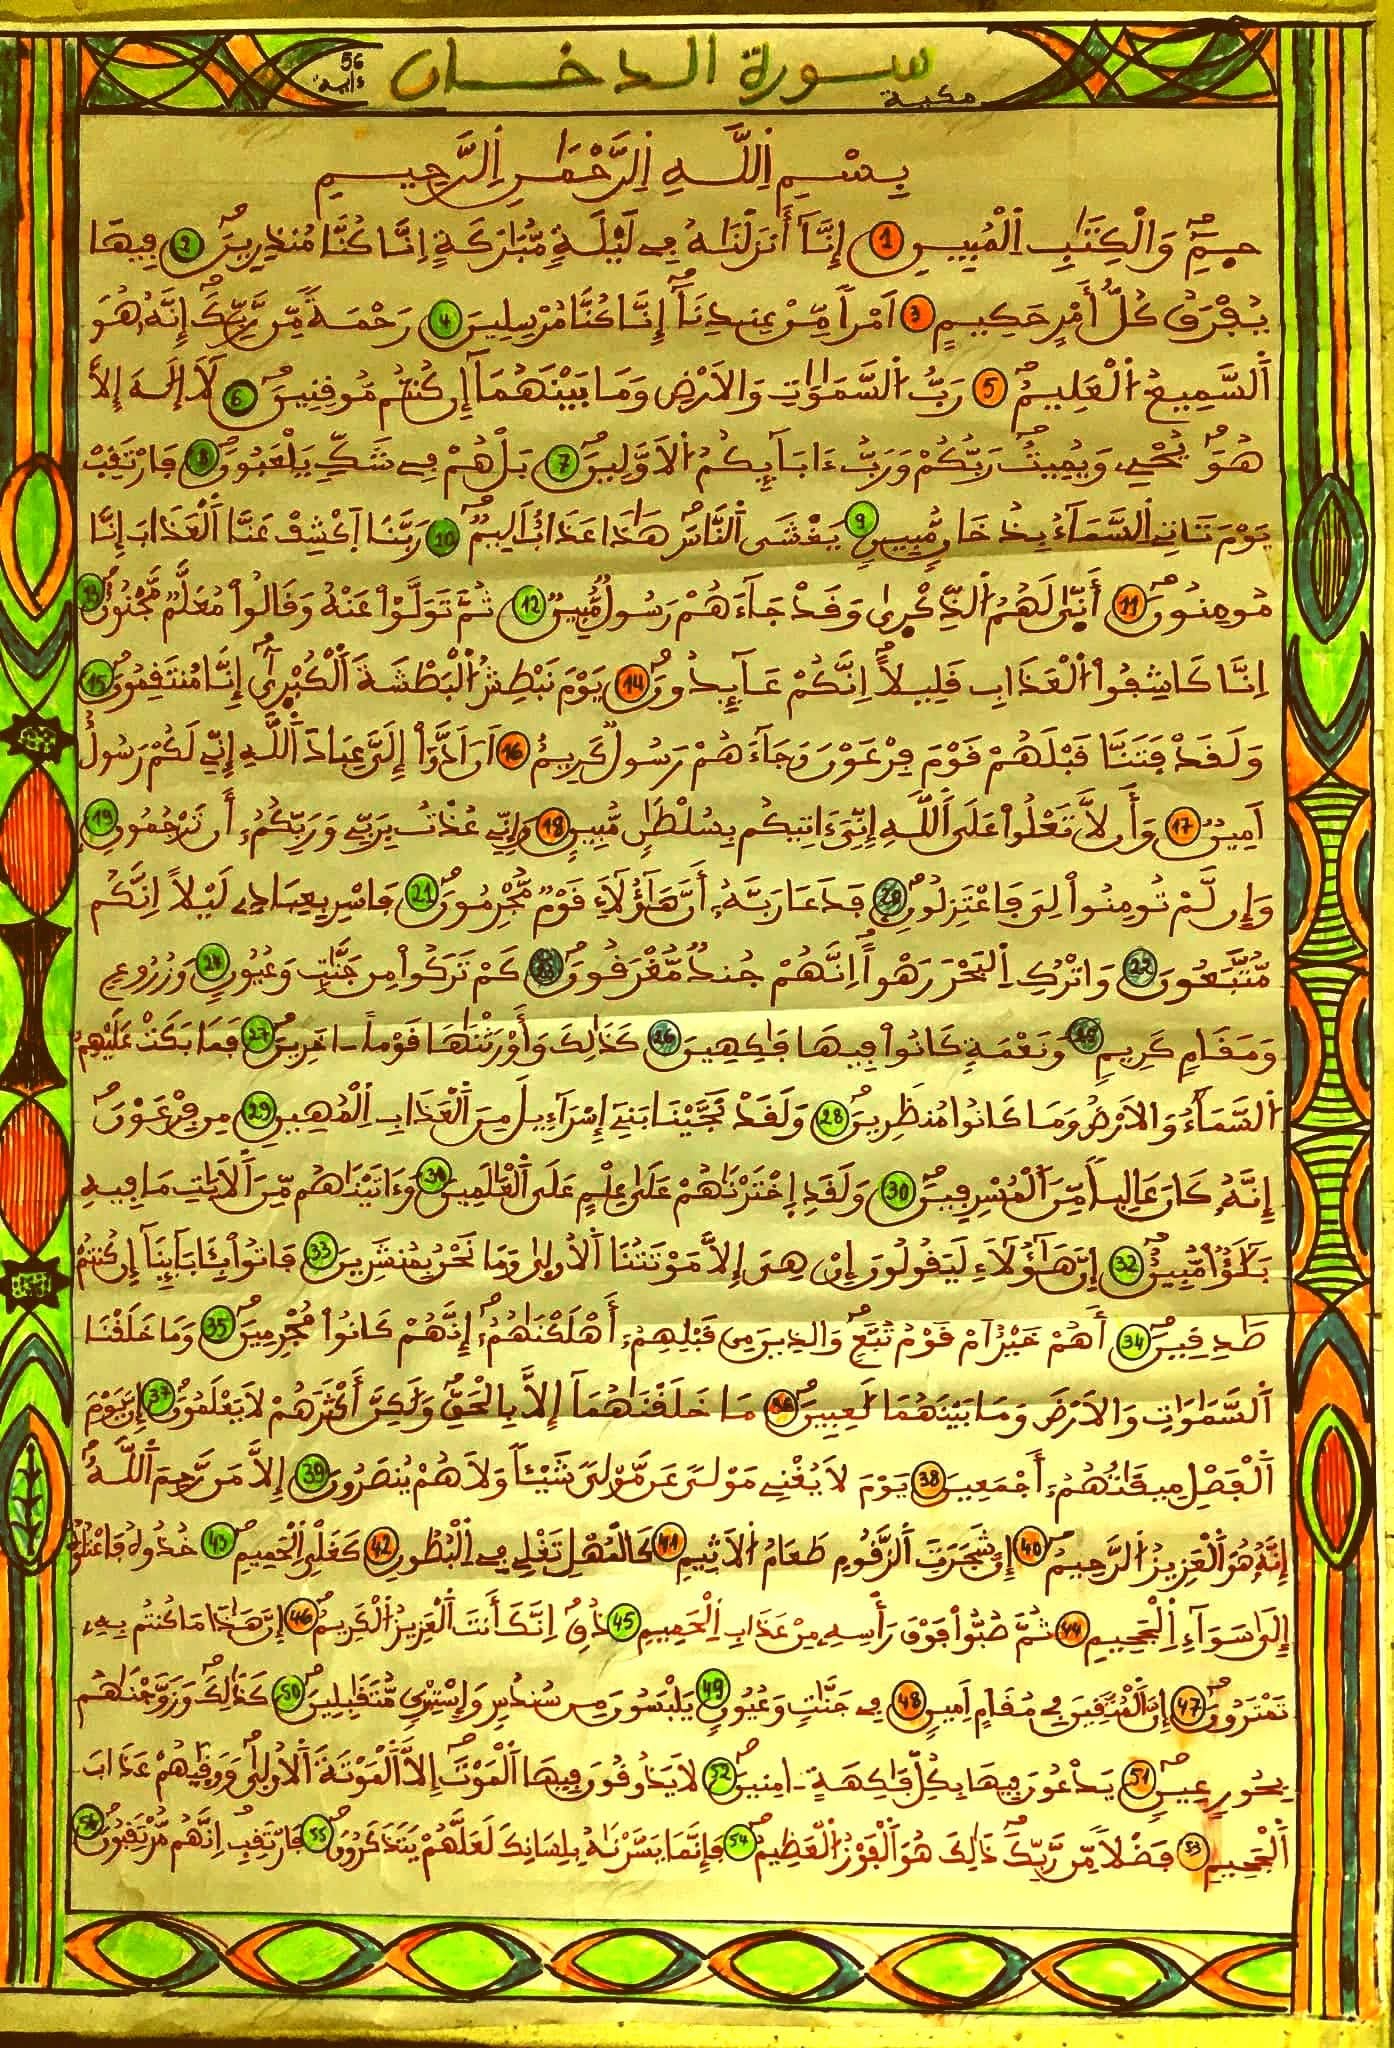 56
ءاية
سورة الدخان
مكية
بِسْمِ اِللَّهِ اِلرَّحْمَٰنِ اِلرَّحِيمِ
حمِٓ وَالْكِتَٰبِ اِلْمُبِينِ 1 إِنَّآ أَنزَلْنَٰهُ فِے لَيْلَةٖ مُّبَٰرَكَةٍ اِنَّا كُنَّا مُنذِرِينَ 2 فِيهَا
يُفْرَقُ كُلُّ أَمْرٍ حَكِيمٍ 3 اَمْراٗ مِّنْ عِندِنَآ إِنَّا كُنَّا مُرْسِلِينَ 4 رَحْمَةٗ مِّن رَّبِّكَ إِنَّهُۥ هُوَ
اَلسَّمِيعُ اُلْعَلِيمُ 5 رَبُّ اُلسَّمَٰوَٰتِ وَالَارْضِ وَمَا بَيْنَهُمَآ إِن كُنتُم مُّوقِنِينَ 6 لَآ إِلَٰهَ إِلَّا
هُوَ يُحْيِۦ وَيُمِيتُ رَبُّكُمْ وَرَبُّ ءَابَآئِكُمُ اُلَاوَّلِينَ 7 بَلْ هُمْ فِے شَكّٖ يَلْعَبُونَ 8 فَارْتَقِبْ
يَوْمَ تَاتِے اِلسَّمَآءُ بِدُخَانٖ مُّبِينٖ 9 يَغْشَى اَلنَّاسَ هَٰذَا عَذَابٌ اَلِيمٌ 10 رَبَّنَا اَكْشِفْ عَنَّا اَلْعَذَابَ إِنَّا
مُومِنُونَ 11 أَنّ۪يٰ لَهُمُ اُلذِّكْر۪يٰ وَقَدْ جَآءَهُمْ رَسُولٞ مُّبِينٞ 12 ثُمَّ تَوَلَّوْاْ عَنْهُ وَقَالُواْ مُعَلَّمٞ مَّجْنُونٌ 13
اِنَّا كَاشِفُواْ اُلْعَذَابِ قَلِيلاً اِنَّكُمْ عَآئِدُونَ 14 يَوْمَ نَبْطِشُ اُلْبَطْشَةَ اَلْكُبْر۪يٰٓ إِنَّا مُنتَقِمُونَ 15
وَلَقَدْ فَتَنَّا قَبْلَهُمْ قَوْمَ فِرْعَوْنَ وَجَآءَهُمْ رَسُولٞ كَرِيمٌ 16 اَنَ اَدُّوٓاْ إِلَيَّ عِبَادَ اَللَّهِ إِنِّے لَكُمْ رَسُولٌ
اَمِينٞ 17 وَأَن لَّا تَعْلُواْ عَلَى اَللَّهِ إِنِّيَ ءَاتِيكُم بِسُلْطَٰنٖ مُّبِينٖ 18 وَإِنِّے عُذْتُ بِرَبِّے وَرَبِّكُمُۥٓ أَن تَرْجُمُونِ 19
وَإِن لَّمْ تُومِنُواْ لِيَ فَاعْتَزِلُونِ 20 فَدَعَا رَبَّهُۥٓ أَنَّ هَٰٓؤُلَآءِ قَوْمٞ مُّجْرِمُونَ 21 فَاسْرِ بِعِبَادِے لَيْلاً اِنَّكُم
مُّتَّبَعُونَ 22 وَاتْرُكِ اِلْبَحْرَ رَهْواً اِنَّهُمْ جُندٞ مُّغْرَقُونَ 23 كَمْ تَرَكُواْ مِن جَنَّٰتٖ وَعُيُونٖ 24 وَزُرُوعٖ
وَمَقَامٖ كَرِيمٖ 25 وَنَعْمَةٖ كَانُواْ فِيهَا فَٰكِهِينَ 26 كَذَٰلِكَ وَأَوْرَثْنَٰهَا قَوْماً ـ اخَرِينَ 27 فَمَا بَكَتْ عَلَيْهِمُ
اُلسَّمَآءُ وَالَارْضُ وَمَا كَانُواْ مُنظَرِينَ 28 وَلَقَدْ نَجَّيْنَا بَنِےٓ إِسْرَآءِيلَ مِنَ اَلْعَذَابِ اِلْمُهِينِ 29 مِن فِرْعَوْنَ
إِنَّهُۥ كَانَ عَالِياٗ مِّنَ اَلْمُسْرِفِينَ 30 وَلَقَدِ اِخْتَرْنَٰهُمْ عَلَىٰ عِلْمٍ عَلَى اَلْعَٰلَمِينَ 31 وَءَاتَيْنَٰهُم مِّنَ اَلَايَٰتِ مَا فِيهِ
بَلَٰٓؤٌاْ مُّبِينٌ 32 إِنَّ هَٰٓؤُلَآءِ لَيَقُولُونَ إِنْ هِيَ إِلَّا مَوْتَتُنَا اَلُاول۪يٰ وَمَا نَحْنُ بِمُنشَرِينَ 33 فَاتُواْ بِـَٔابَآئِنَآ إِن كُنتُمْ
صَٰدِقِينَ 34 أَهُمْ خَيْرٌ اَمْ قَوْمُ تُبَّعٖ وَالذِينَ مِن قَبْلِهِمُۥٓ أَهْلَكْنَٰهُمُۥٓ إِنَّهُمْ كَانُواْ مُجْرِمِينَ 35 وَمَا خَلَقْنَا
اَلسَّمَٰوَٰتِ وَالَارْضَ وَمَا بَيْنَهُمَا لَٰعِبِينَ 36 مَا خَلَقْنَٰهُمَآ إِلَّا بِالْحَقِّ وَلَٰكِنَّ أَكْثَرَهُمْ لَا يَعْلَمُونَ 37 إِنَّ يَوْمَ
اَلْفَصْلِ مِيقَٰتُهُمُۥٓ أَجْمَعِينَ 38 يَوْمَ لَا يُغْنِے مَوْلىً عَن مَّوْلىٗ شَيْـٔاٗ وَلَا هُمْ يُنصَرُونَ 39 إِلَّا مَن رَّحِمَ اَللَّهُ
إِنَّهُۥ هُوَ اَلْعَزِيزُ اُلرَّحِيمُ 40 إِنَّ شَجَرَتَ اَلزَّقُّومِ طَعَامُ اُلَاثِيمِ 41 كَالْمُهْلِ تَغْلِے فِے اِلْبُطُونِ 42 كَغَلْيِ اِلْحَمِيمِ 43 خُذُوهُ فَاعْتُلُوهُ
إِلَىٰ سَوَآءِ اِلْجَحِيمِ 44 ثُمَّ صُبُّواْ فَوْقَ رَأْسِهِۦ مِنْ عَذَابِ اِلْحَمِيمِ 45 ذُقِ اِنَّكَ أَنتَ اَلْعَزِيزُ اُلْكَرِيمُ 46 إِنَّ هَٰذَا مَا كُنتُم بِهِۦ
تَمْتَرُونَ 47 إِنَّ اَلْمُتَّقِينَ فِے مُقَامٍ اَمِينٖ 48 فِے جَنَّٰتٖ وَعُيُونٖ 49 يَلْبَسُونَ مِن سُندُسٖ وَإِسْتَبْرَقٖ مُّتَقَٰبِلِينَ 50 كَذَٰلِكَ وَزَوَّجْنَٰهُم
بِحُورٍ عِينٖ 51 يَدْعُونَ فِيهَا بِكُلِّ فَٰكِهَةٍ ـ امِنِينَ 52 لَا يَذُوقُونَ فِيهَا اَلْمَوْتَ إِلَّا اَلْمَوْتَةَ اَلُاول۪يٰ وَوَق۪يٰهُمْ عَذَابَ
اَلْجَحِيمِ 53 فَضْلاٗ مِّن رَّبِّكَ ذَٰلِكَ هُوَ اَلْفَوْزُ اُلْعَظِيمُ 54 فَإِنَّمَا يَسَّرْنَٰهُ بِلِسَانِكَ لَعَلَّهُمْ يَتَذَكَّرُونَ 55 فَارْتَقِبِ اِنَّهُم مُّرْتَقِبُونَ 56